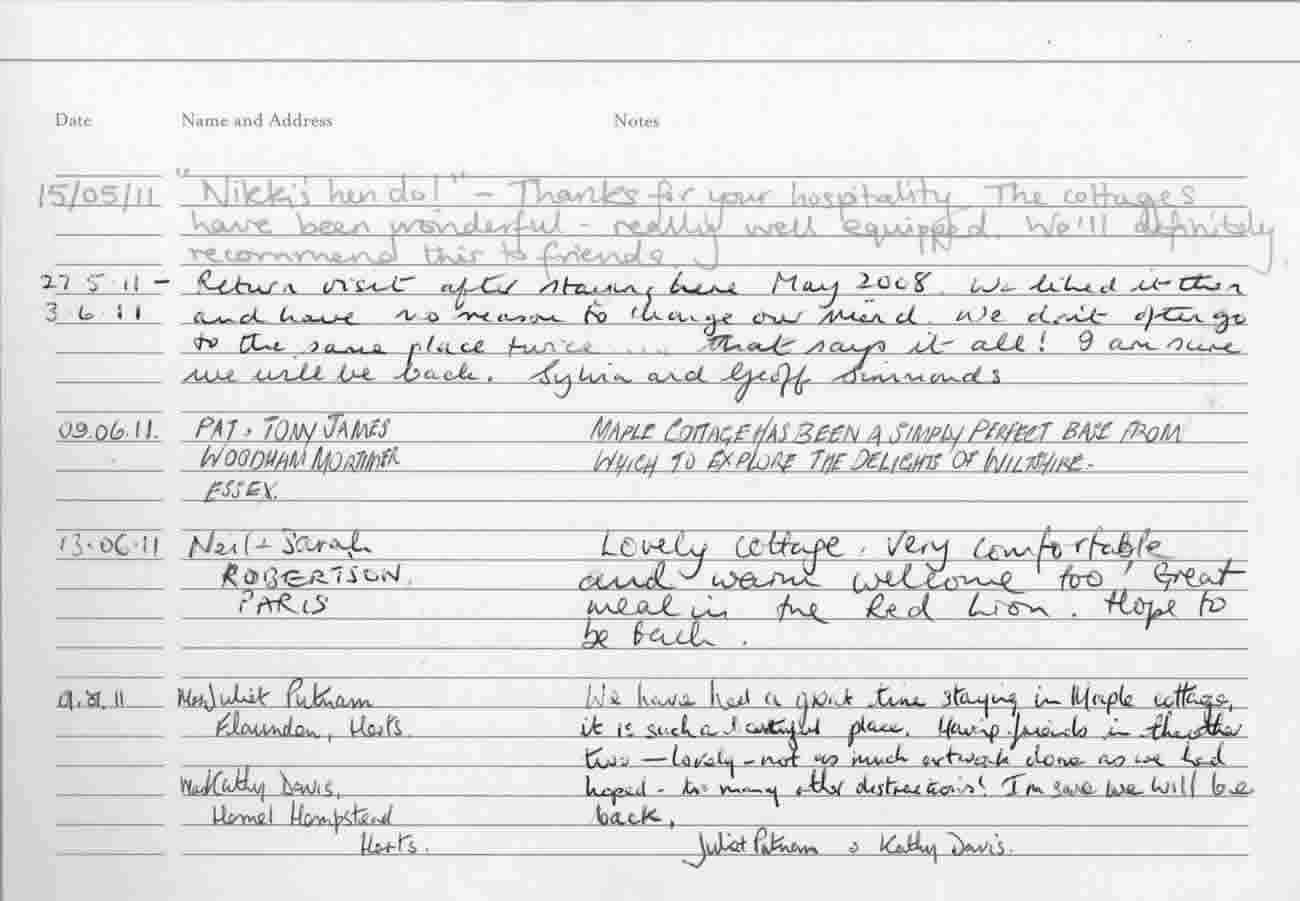 Date Name and Address Notes
15/05/11 "Nikki's hen do!" - Thanks for your hospitality. The cottages
have been wonderful - really well equipped. We'll definitely
recommend this to friends.
27 5 11 - Return visit after staying here May 2008. We liked it then
3.6.11 and have no reason to change our mind. We don't often go
to the same place twice .... that says it all! I am sure
we will be back. Sylvia and Geoff Simmonds
09.06.11. PAT + TONY JAMES MAPLE COTTAGE HAS BEEN A SIMPLY PERFECT BASE FROM
WOODHAM MORTIMER WHICH TO EXPLORE THE DELIGHTS OF WILTSHIRE.
ESSEX.
13.06.11 Neil + Sarah Lovely cottage. Very comfortable
ROBERTSON. and warm welcome too! Great
PARIS meal in the Red Lion. Hope to
be back.
Juliet Putnam We have had a great time staying in Maple cottage,
Flaunden, Herts. it is such a beautiful place. Having friends in the other
two - lovely - not as much artwork done as we had
Kathy Davis, hoped - too many other distractions! I'm sure we will be
Hemel Hempstead back,
Herts. Juliet Putnam & Kathy Davis.